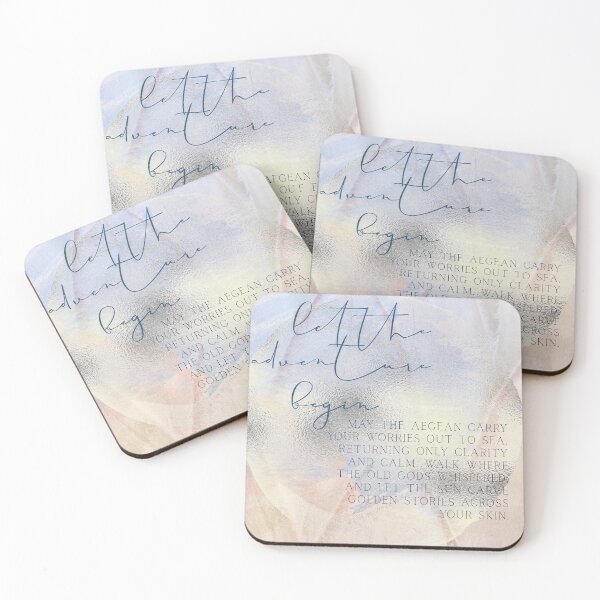 let the
adventure
begin
AEGEAN
OUT
ONLY
let the
adventure
begin
MAY THE AEGEAN CARRY
YOUR WORRIES OUT TO SEA,
RETURNING ONLY CLARITY
AND CALM. WALK WHERE
THE OLD GODS WHISPERED
ACROSS
SKIN.
let the
adventure
begin
MAY THE AEGEAN CARRY
YOUR WORRIES OUT TO SEA,
RETURNING ONLY CLARITY
AND CALM. WALK
THE OLD GODS
AND LET THE
GOLDEN
let the
adventure
begin
MAY THE AEGEAN CARRY
YOUR WORRIES OUT TO SEA,
RETURNING ONLY CLARITY
AND CALM. WALK WHERE
THE OLD GODS WHISPERED
AND LET THE SUN CARVE
GOLDEN STORIES ACROSS
YOUR SKIN.